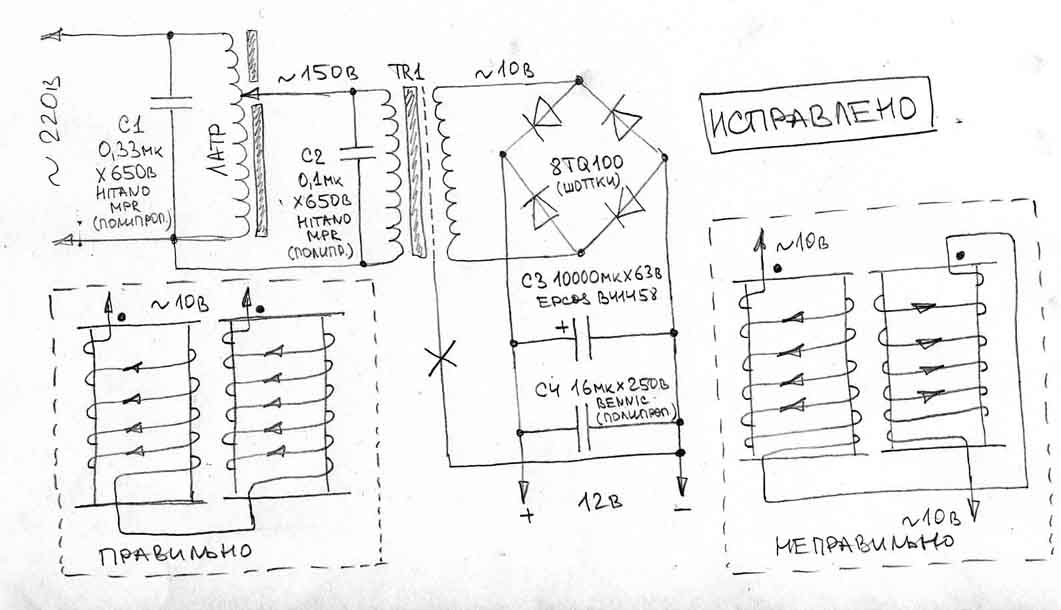 ~220В
C1
0,33мк
X650В
HITANO
MPR
(ПОЛИПРОП.)
ЛАТР
~150В
C2
0,1мк
X650В
HITANO
MPR
(ПОЛИПР.)
TR1
~10В
8TQ100
(ШОТТКИ)
C3 10000мкX63В
EPCOS B41458
+
C4 16мкX250В
BENNIC
(ПОЛИПРОП.)
+
12В
−
ИСПРАВЛЕНО
~10В
ПРАВИЛЬНО
~10В
~10В
НЕПРАВИЛЬНО